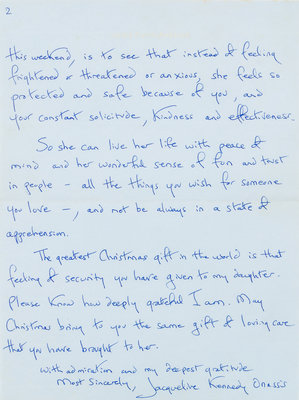 2
this weekend, is to see that instead of feeling
frightened or threatened or anxious, she feels so
protected and safe because of you, and
your constant solicitude, kindness and effectiveness.
So she can live her life with peace of
mind and her wonderful sense of fun and trust
in people – all the things you wish for someone
you love –, and not be always in a state of
apprehension.
The greatest Christmas gift in the world is that
feeling of security you have given to my daughter.
Please know how deeply grateful I am. May
Christmas bring to you the same gift of loving care
that you have brought to her.
with admiration and my deepest gratitude
Most Sincerely, Jacqueline Kennedy Onassis